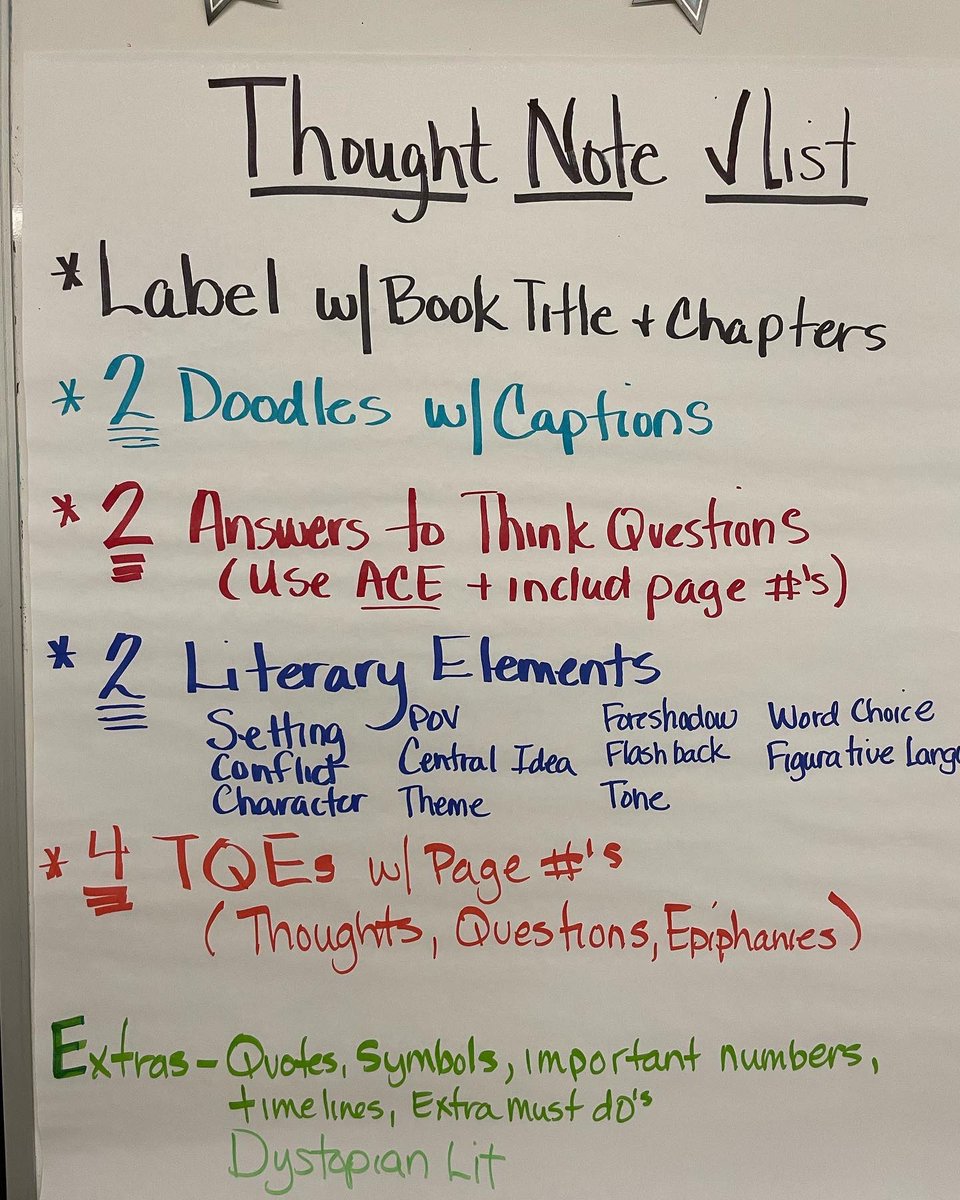 Thought Note √ List
* Label w/ Book Title + Chapters
* 2 Doodles w/ Captions
* 2 Answers to Think Questions
(Use ACE + includ page #'s)
* 2 Literary Elements
Setting POV Foreshadow Word Choice
Conflict Central Idea Flashback Figurative Lang
Character Theme Tone
* 4 TQEs w/ Page #'s
(Thoughts, Questions, Epiphanies)
Extras - Quotes, Symbols, important numbers,
timelines, Extra must do's
Dystopian Lit